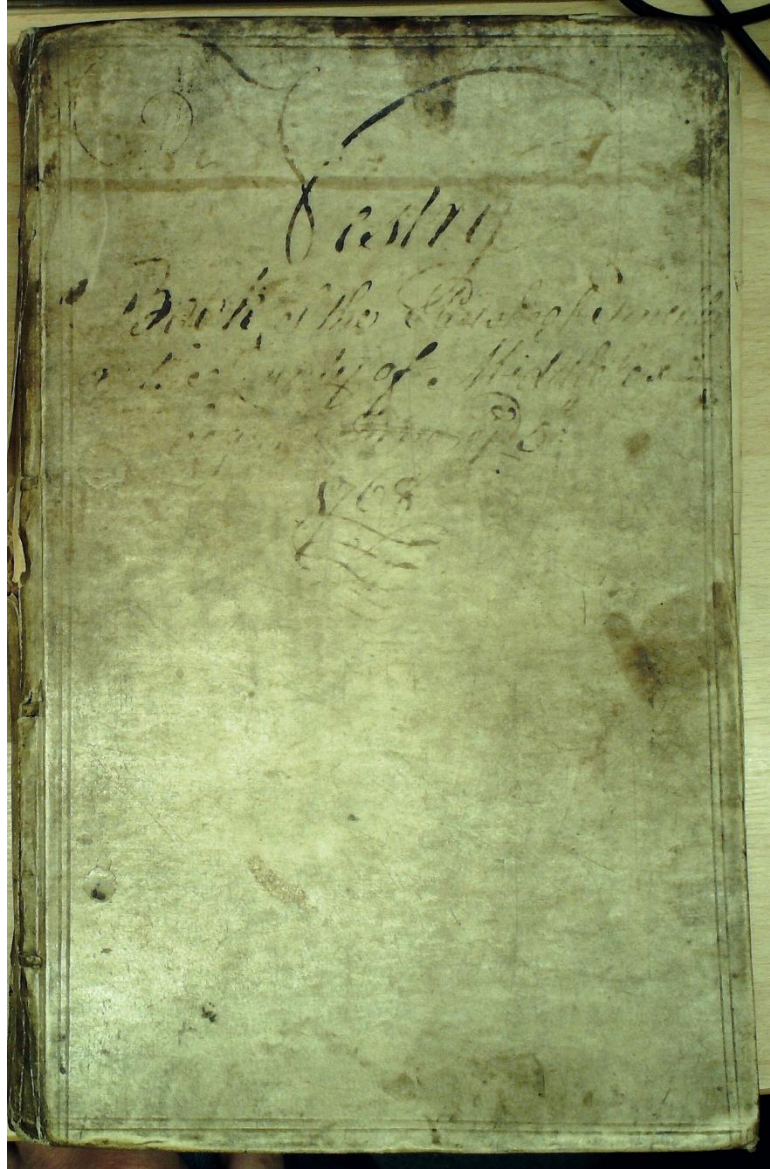 Vestry
Book of the Parish of
in the County of Middlesex
1708